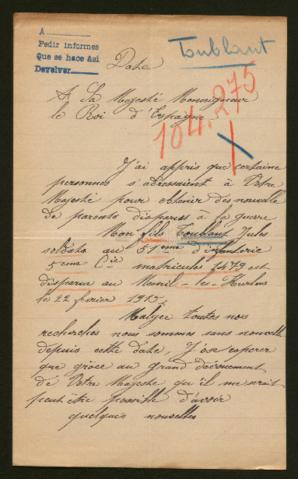 A
Pedir informes
Que se hace Así
Devolver
Toublant
Date
104.275
A Sa Majesté Monseigneur
le Roi d'Espagne
J'ai appris que certaine
personnes s'adressaient à Votre
Majesté pour obtenir des nouvelle
de parents disparus à la guerre
Mon fils Toublant Jules
soldat au 51eme d'infanterie
5eme Cie matricule est
disparu au Mesnil-les-Hurlus
le 22 février 1915
Malgré toutes nos
recherches nous sommes sans nouvelle
depuis cette date. J'ose esperer
que grâce au grand dévouement
de Votre Majesté qu'il me serait
peut être possible d'avoir
quelques nouvelles